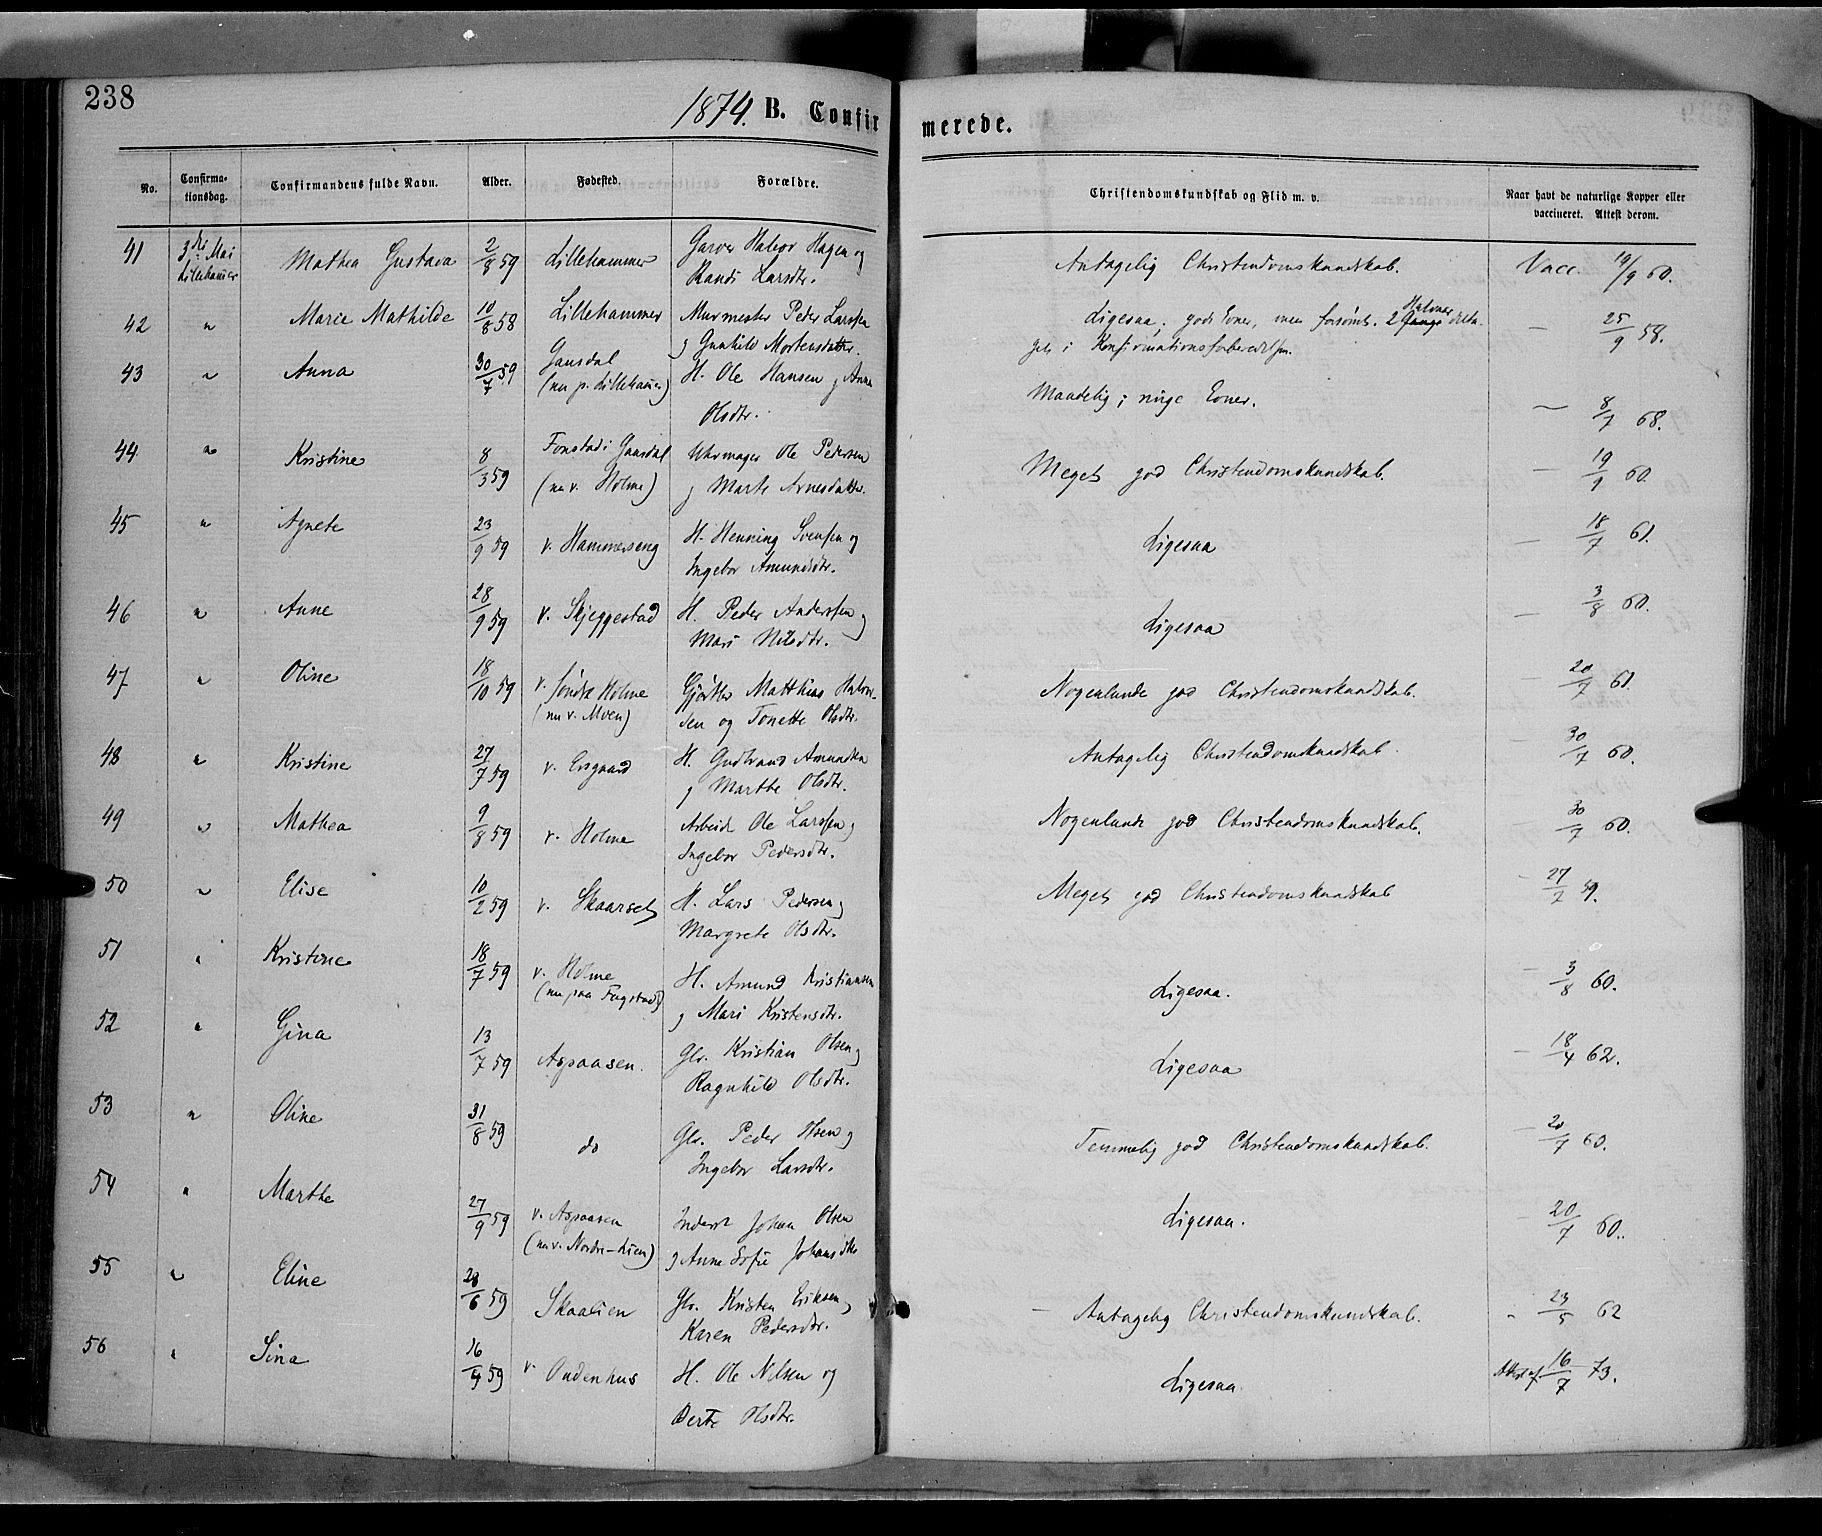 238
1874. B. Confirmerede.
No. Confirmationsdag. Confirmandens fulde Navn. Alder. Fødested. Forældre. Christendomskundskab og Flid m. v. Naar havt de naturlige Kopper eller vaccineret. Attest derom.
41 3die Mai Lillehammer Mathea Gustava 2/8 59 Lillehammer Garver Halvor Hagen og Randi Larsdtr. Antagelig Christendomskundskab. Vacc. 19/9 60.
42 " Marie Mathilde 10/8 58 Lillehammer Murmester Peder Larssen og Gunhild Mortensdatter. Ligesaa; gode Evner, men forsømt. 2 Halvaar deltaget i Konfirmationsforberedelsen. — 25/9 58.
43 " Anna 30/7 59 Gausdal (nu p. Lillehamer) H. Ole Hansen og Anne Olsdtr. Maadelig; ringe Evner. — 8/7 68.
44 " Kristine 8/3 59 Fonstad i Gausdal (nu v. Holme) Uhrmager Ole Pedersen og Marte Arnesdatter. Meget god Christendomskundskab. — 19/9 60.
45 " Agnete 23/9 59 v. Hammerseng H. Henning Svensen og Ingebor Amundsdtr. Ligesaa — 18/7 61.
46 " Anne 28/9 59 v. Skjeggestad H. Peder Anderssen og Mari Nilsdtr. Ligesaa — 3/8 60.
47 " Oline 18/10 59 v. Søndre Holme (nu v. Moen) Gjørtler Matthias Halvorsen og Tonette Olsdtr. Nogenlunde god Christendomskundskab. — 20/7 61.
48 " Kristine 27/7 59 v. Ersgaard H. Gudbrand Amundsen og Marthe Olsdtr. Antagelig Christendomskundskab. — 30/7 60.
49 " Mathea 9/8 59 v. Holme Arbeid. Ole Larssen og Ingebor Pedersdtr. Nogenlunde god Christendomskundskab. 30/7 60.
50 " Elise 10/2 59 v. Skaarset H. Lars Pedersen og Margrete Olsdtr. Meget god Christendomskundskab — 27/7 59.
51 " Kristine 18/7 59 v. Holme (nu paa Fagstad) H. Amund Kristiansen og Mari Kristensdtr. Ligesaa. — 3/8 60.
52 " Gina 13/7 59 Aspaasen. Glr. Kristian Olsen og Ragnhild Olsdtr. Ligesaa — 18/4 62.
53 " Oline 31/8 59 do Glr. Peder Olsen og Ingebor Larsdtr. Temmelig god Christendomskundskab. — 20/7 60.
54 " Marthe 27/9 59 v. Aspaasen (nu v. Nordre-Lien) Inderst Johan Olsen og Anne Sofie Johansdtr Ligesaa. — 20/7 60.
55 " Eline 28/6 59 Skaalien Glr. Kristen Eriksen og Karen Pedersdtr. — Antagelig Christendomskundskab. " 23/5 62
56 " Sina 16/4 59 v. Oudenhus H. Ole Nilsen og Berte Olsdtr. Ligesaa. Attest af 16/7 73.